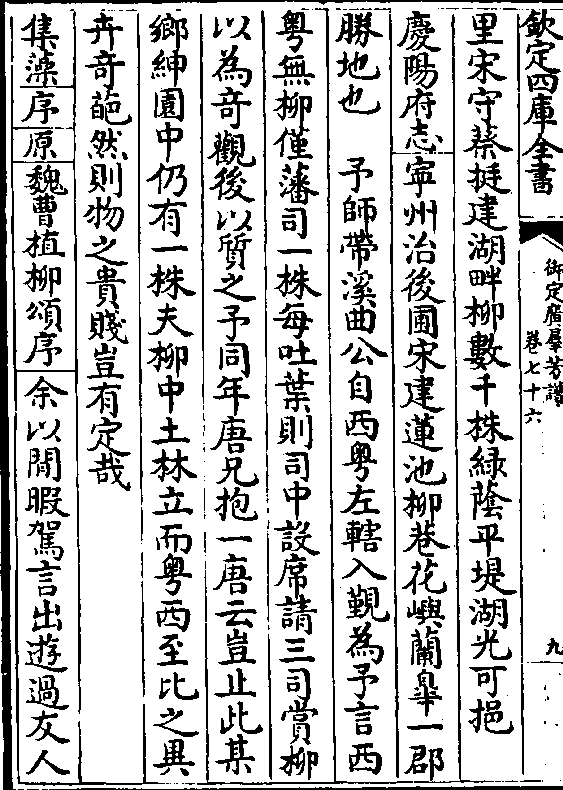 欽定四庫全書
御定廣羣芳譜
卷七十六
九
里宋守蔡挺建湖畔柳數千株緑蔭平堤湖光可挹
慶陽府志寧州治後圃宋建蓮池柳巷花嶼蘭臯一郡
勝地也　予師帶溪曲公自西粤左轄入覲為予言西
粤無柳僅藩司一株每吐葉則司中設席請三司賞柳
以為奇觀後以質之予同年唐兄抱一唐云豈止此某
鄉紳園中仍有一株夫柳中土林立而粤西至比之異
卉奇葩然則物之貴賤豈有定哉
集藻序原魏曹植柳頌序余以閒暇駕言出遊過友人